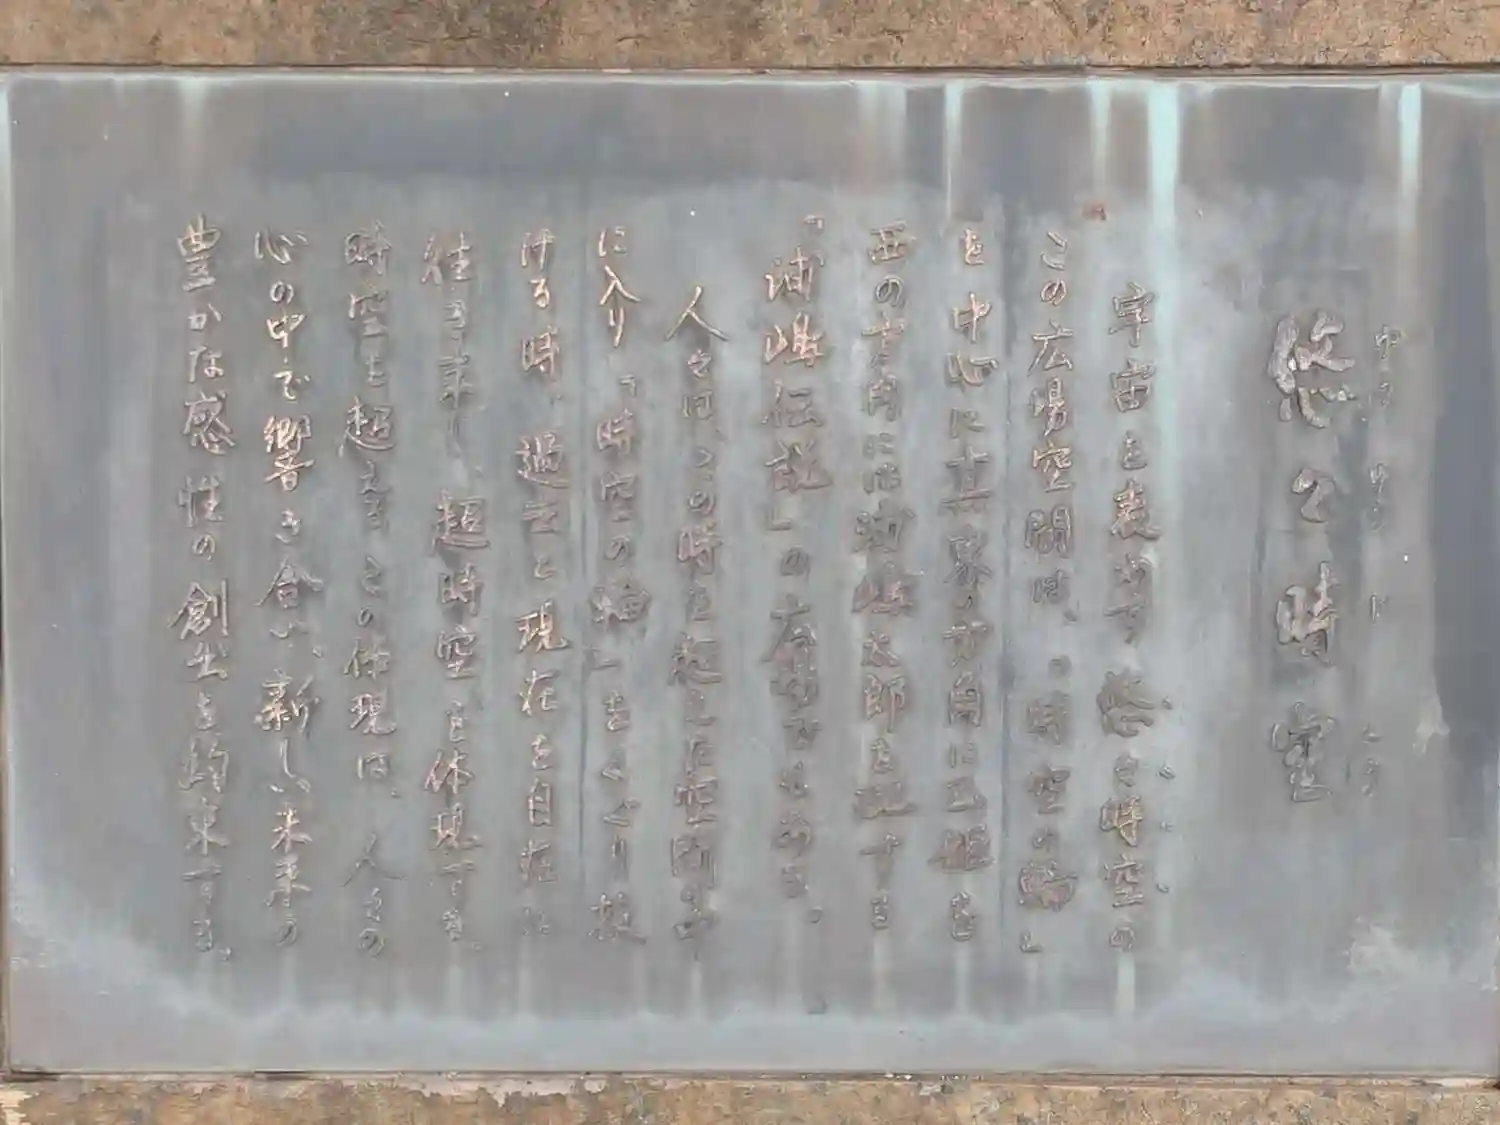 悠々時空
ゆうゆうじくう
宇宙を表わす悠々時空の
この広場空間は、「時空の輪」
を中心に真東の方角に乙姫を
西の方角には浦嶋太郎を配する
「浦嶋伝説」の広場でもある。
人々は、この時を超えた空間の中
に入り「時空の輪」をくぐり抜
ける時、過去と現在を自在に
往き来し、超時空を体現する。
時空を超えるこの体現は、人々の
心の中で響き合い、新しい未来の
豊かな感性の創出を約束する。